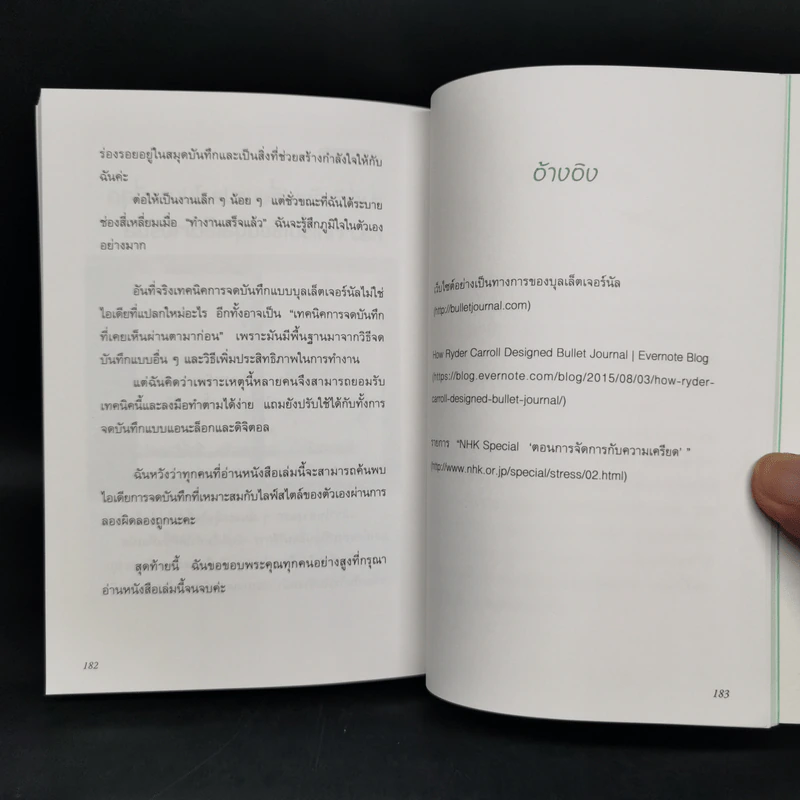 ร่องรอยอยู่ในสมุดบันทึกและเป็นสิ่งที่ช่วยสร้างกำลังใจให้กับ
ฉันค่ะ
ต่อให้เป็นงานเล็ก ๆ น้อย ๆ แต่ชั่วขณะที่ฉันได้ระบาย
ช่องสี่เหลี่ยมเมื่อ “ทำงานเสร็จแล้ว” ฉันจะรู้สึกภูมิใจในตัวเอง
อย่างมาก
อันที่จริงเทคนิคการจดบันทึกแบบบุลเล็ตเจอร์นัลไม่ใช่
ไอเดียที่แปลกใหม่อะไร อีกทั้งอาจเป็น “เทคนิคการจดบันทึก
ที่เคยเห็นผ่านตามาก่อน” เพราะมันมีพื้นฐานมาจากวิธีจด
บันทึกแบบอื่น ๆ และวิธีเพิ่มประสิทธิภาพในการทำงาน
แต่ฉันคิดว่าเพราะเหตุนี้หลายคนจึงสามารถยอมรับ
เทคนิคนี้และลงมือทำตามได้ง่าย แถมยังปรับใช้ได้กับทั้งการ
จดบันทึกแบบแอนะล็อกและดิจิตอล
ฉันหวังว่าทุกคนที่อ่านหนังสือเล่มนี้จะสามารถค้นพบ
ไอเดียการจดบันทึกที่เหมาะสมกับไลฟ์สไตล์ของตัวเองผ่านการ
ลองผิดลองถูกนะคะ
สุดท้ายนี้ ฉันขอขอบพระคุณทุกคนอย่างสูงที่กรุณา
อ่านหนังสือเล่มนี้จนจบค่ะ
182
อ้างอิง
เว็บไซต์อย่างเป็นทางการของบุลเล็ตเจอร์นัล
(http://bulletjournal.com)
How Ryder Carroll Designed Bullet Journal | Evernote Blog
(https://blog.evernote.com/blog/2015/08/03/how-ryder-
carroll-designed-bullet-journal/)
รายการ “NHK Special ‘ตอนการจัดการกับความเครียด’ ”
(http://www.nhk.or.jp/special/stress/02.html)
183